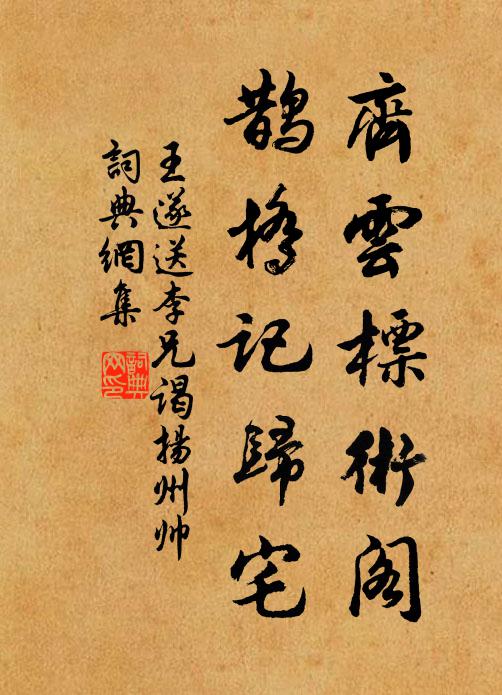 齊雲標術閣
鵲橋記歸宅
王遂送李兄謁揚州帅
詞典網集
詞典網印